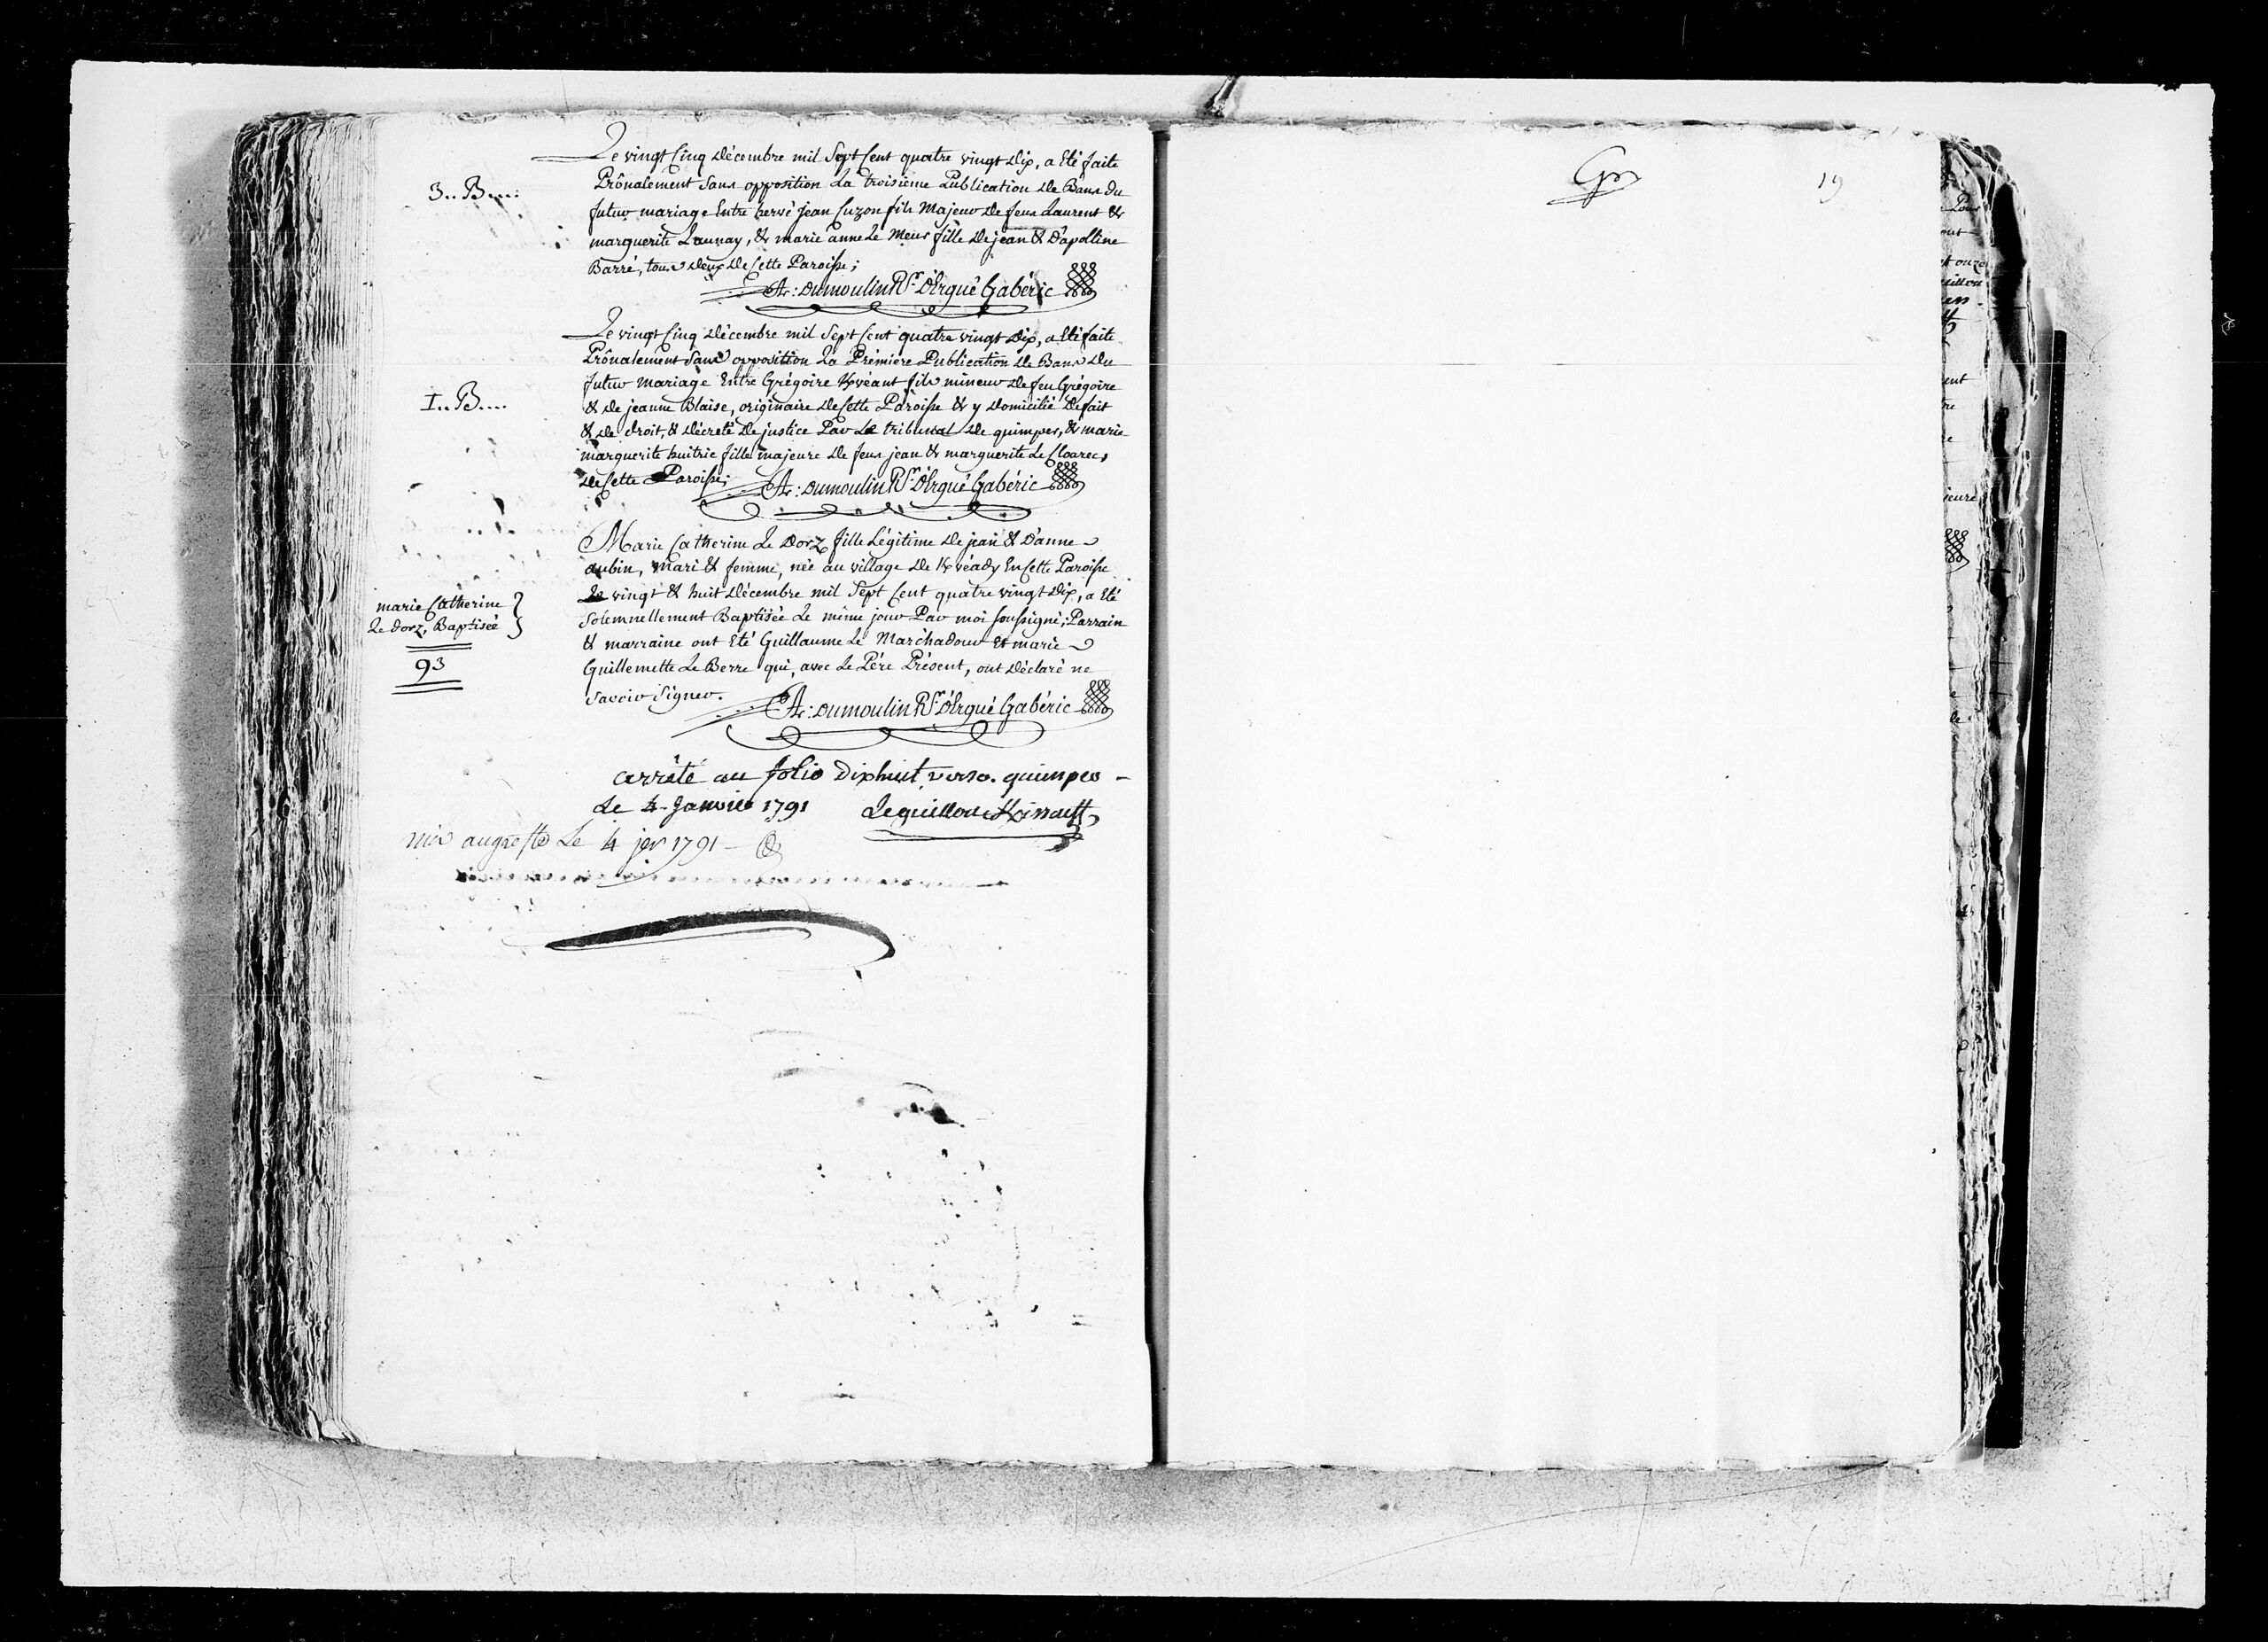 Le vingt Cinq Décembre mil Sept Cent quatre vingt Dix, a Eté faite
3..B....
Prônalement Sans opposition La troisieme Publication de Bans du
futur mariage Entre hervé jean Cuzon fils Majeur de feus Laurent &
marguerite Launay, & marie anne Le Meur fille de jean & D'apolline
Barré, tous deux de Cette Paroisse;
A: Dumoulin Rr. D'Ergué Gabéric
Le vingt Cinq Décembre mil Sept Cent quatre vingt Dix, a Eté faite
Prônalement Sans opposition La Prémiere Publication de Bans du
futur mariage Entre Grégoire Kvéant fils mineur de feu Grégoire
I..B....
& de jeanne Blaise, originaire de Cette Paroisse & y Domicilié de fait
& de droit, & Décreté de justice Par Le tribunal de quimper, & marie
marguerite huitric fille majeure de feus jean & marguerite Le Cloarec,
de Cette Paroisse;
A: Dumoulin Rr. D'Ergué Gabéric
Marie Catherine Le Dorz fille Légitime de jean & D'anne
aubin, mari & femme, née au village de Kvéady En Cette Paroisse
Le vingt & huit Décembre mil Sept Cent quatre vingt Dix, a Eté
marie Catherine
Le dorz, Baptisée
93
Solemnellement Baptisée Le même jour Par moi soussigné; Parrain
& marraine ont Eté Guillaume Le Marchadour Et marie
Guillemette Le Berre qui, avec Le Pére Présent, ont Déclaré ne
Savoir Signer.
A: Dumoulin Rr. D'Ergué Gabéric
arrêté au folio Dixhuit verso. quimper
Le 4 Janvier 1791
Leguillou
au greffe Le 4 jer 1791
19